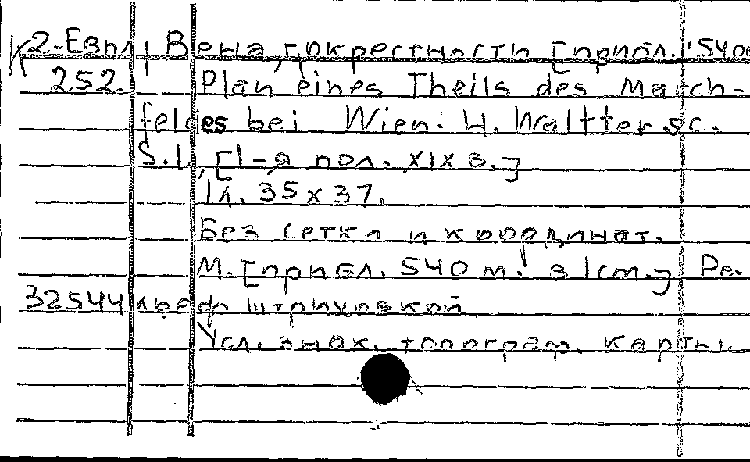 К2-Евп/ Вена, окрестность [прибл. 540
252. Plan eines Theils des March-
feldes bei Wien. H. Waltter sc.
S.l., [1-я пол. XIX в.]
1л. 35x37.
Без сетки и координат.
М. [прибл. 540 м. в 1 см.] Ре-
32544 льеф штриховкой
Усл. знак. топограф. карты.